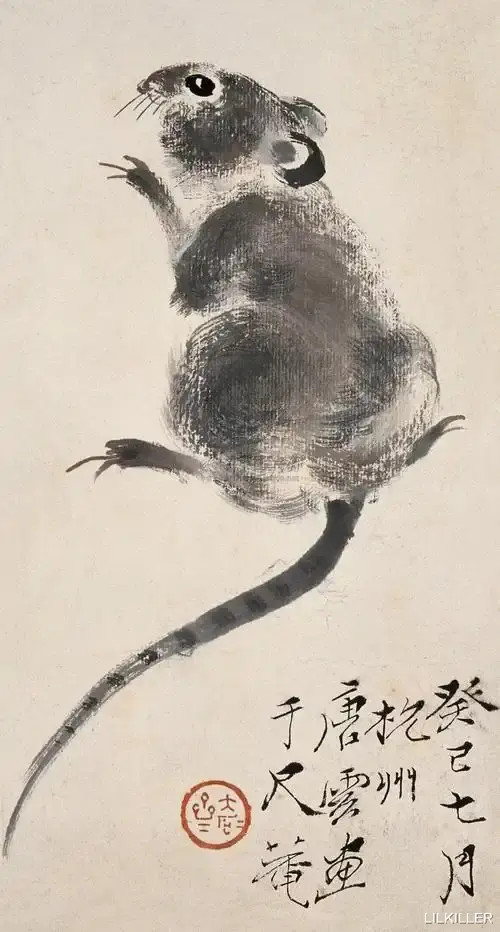 癸巳七月
杭州
唐雲畫
于尺菴
LILKILLER